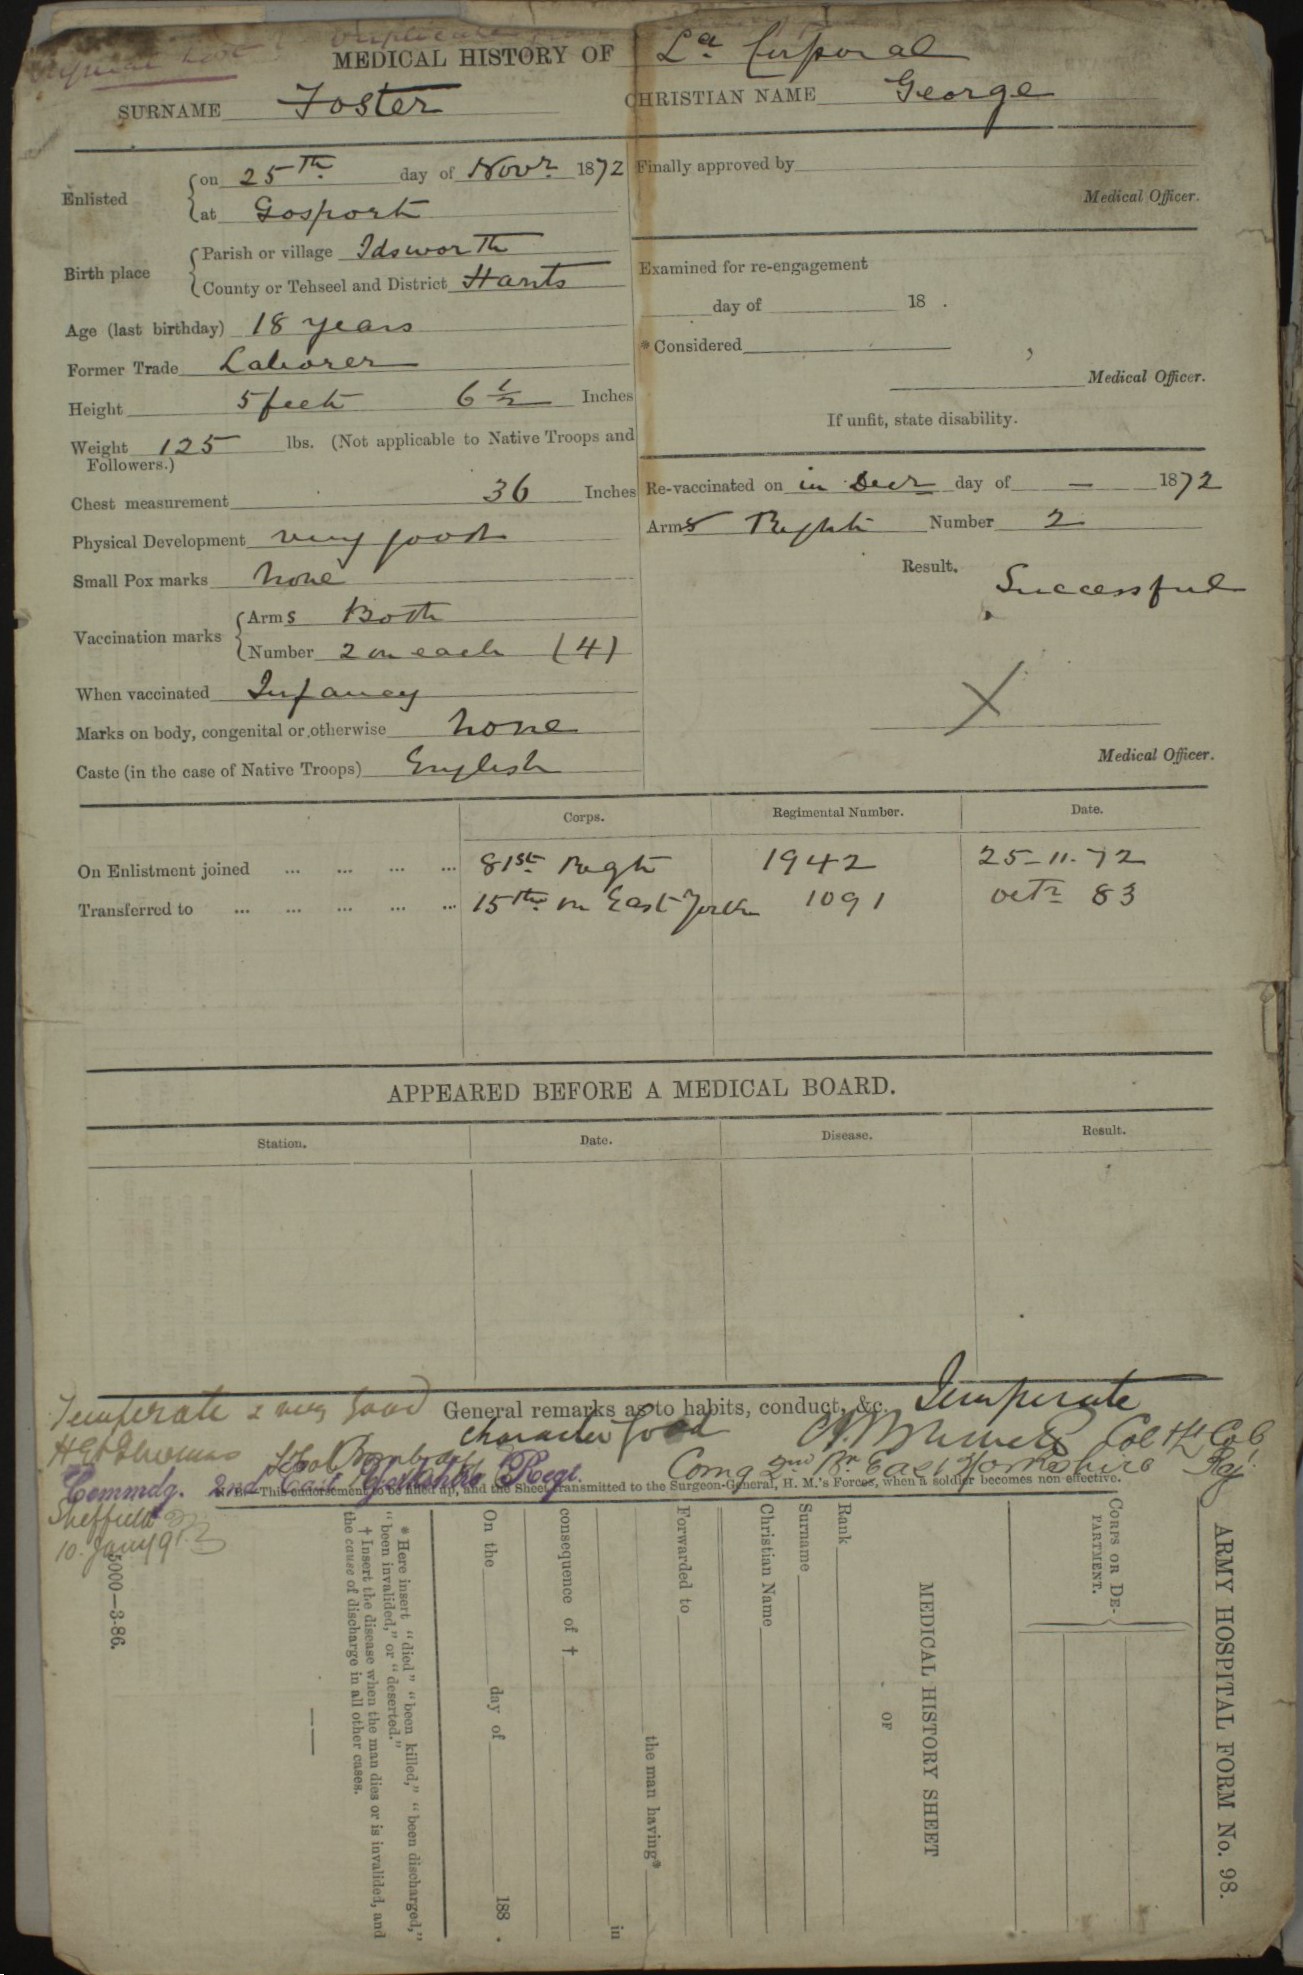 Duplicate
MEDICAL HISTORY OF Lce Corporal
SURNAME Foster CHRISTIAN NAME George
Enlisted on 25th day of Novr 1872
at Gosport
Birth place Parish or village Idsworth
County or Tehseel and District Hants
Age (last birthday) 18 years
Former Trade Laborer
Height 5 feet 6 1/2 Inches
Weight 125 lbs. (Not applicable to Native Troops and
Followers.)
Chest measurement 36 Inches
Physical Development very good
Small Pox marks none
Vaccination marks Arms Both
Number 2 on each (4)
When vaccinated Infancy
Marks on body, congenital or otherwise none
Caste (in the case of Native Troops) English
Finally approved by
Medical Officer.
Examined for re-engagement
day of 18 .
* Considered
Medical Officer.
If unfit, state disability.
Re-vaccinated on in Decr day of — 1872
Arms Right Number 2
Result. Successful
X
Medical Officer.
Corps. Regimental Number. Date.
On Enlistment joined ... ... ... ... 81st Regt 1942 25-11-72
Transferred to ... ... ... ... ... 15th or East York 1091 Octr 83
APPEARED BEFORE A MEDICAL BOARD.
Station. Date. Disease. Result.
Temperate & very good
General remarks as to habits, conduct, &c. Temperate
character good
Commdg. 2nd East Yorkshire Regt.
Comg 2nd Bn East Yorkshire Regt
N.B.—This endorsement to be filled up, and the Sheet transmitted to the Surgeon-General, H. M.'s Forces, when a soldier becomes non-effective.
Sheffield
10. Jany 91
5000—3-86.
ARMY HOSPITAL FORM No. 98.
CORPS OR DE-
PARTMENT.
MEDICAL HISTORY SHEET
OF
Rank
Surname
Christian Name
Forwarded to
the man having*
in
consequence of †
On the day of 188 .
* Here insert "died" "been killed," "been discharged,"
"been invalided," or "deserted."
† Insert the disease when the man dies or is invalided, and
the cause of discharge in all other cases.